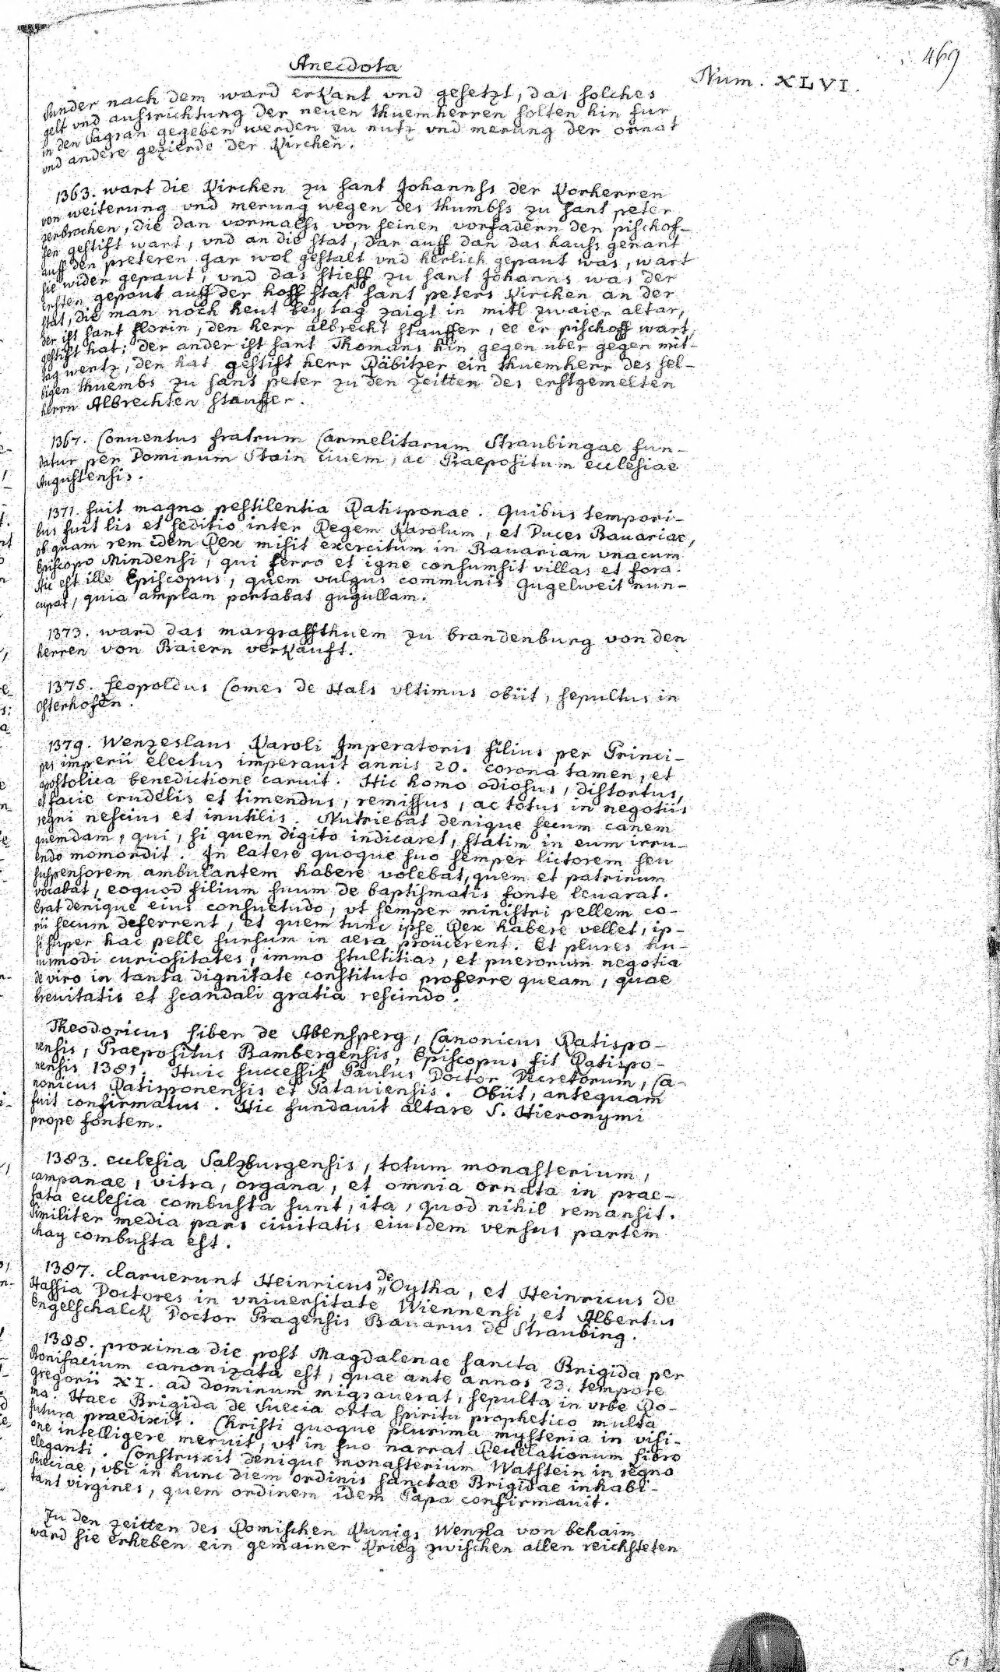 469
Anecdota
Num. XLVI.
Sunder nach dem ward erkant vnd gesetzt, das solches
gelt vnd aufsrichtung der neuen thuemherren solten hin fur
in den Sagran gegeben werden zu nutz vnd merung der ornat
vnd andere gezierde der Kirchen.
1363. wart die Kirchen zu sant Johannss der Korherren
von weiterung vnd merung wegen des thumbss zu sant peter
zerbrochen, die dan vormalss von seinen vorfadern den pischof-
fen gestift wart, vnd an die stat, dar auff dan das hauss genant
auff den preteren gar wol gestalt vnd herlich gepaut was, wart
sie wider gepaut, vnd das stieff zu sant Johanns was der
ersten gepaut auff der hoff stat sant peters Kirchen an der
stat, die man noch heut bey tag zaigt in mitl zwaier altar,
der ist sant florin, den herr albrecht stauffer, ee er pischoff wart,
gestift hat; der ander ist sant Thomans hin gegen uber gegen mit-
tag wertz, den hat gestift herr Räbitzer ein thuemherr des sel-
bigen thuembs zu sant peter zu den zeitten des erstgemelten
herrn Albrechten stauffer.
1367. Conventus fratrum Carmelitarum Straubingae fun-
datur per Dominum Stain civem, ac Praepositum ecclesiae
Augustensis.
1371. fuit magna pestilentia Ratisponae. Quibus tempori-
bus fuit lis et seditio inter Regem Karolum, et Duces Bauariae,
ob quam rem idem Rex misit exercitum in Bauariam vnacum
Episcopo Mindensi, qui ferro et igne consumsit villas et fora.
Hic est ille Episcopus, quem vulgus communis Gugelweit nun-
cupat, quia amplam portabat gugullam.
1373. ward das margraffthuem zu brandenburg von den
herren von Baiern verkauft.
1375. Leopoldus Comes de Hals vltimus obiit, sepultus in
Osterhofen.
1379. Wenzeslaus Karoli Imperatoris filius per Princi-
pes imperii electus imperauit annis 20. corona tamen, et
apostolica benedictione caruit. Hic homo odiosus, distortus,
et facie crudelis et timendus, remissus, ac totus in negotiis
regni nescius et inutilis. Nutriebat denique secum canem
quemdam, qui, si quem digito indicaret, statim in eum irru-
endo momordit. In latere quoque suo semper lictorem seu
suspensorem ambulantem habere volebat, quem et patrinum
vocabat, eoquod filium suum de baptismatis fonte leuarat.
Erat denique eius consuetudo, vt semper ministri pellem co-
rii secum deferrent, et quem tunc ipse Rex habere vellet, ip-
si super hac pelle sursum in aera proiicerent. Et plures hu-
iusmodi curiositates, immo stultitias, et puerorum negotia
de viro in tanta dignitate constituto proferre queam, quae
breuitatis et scandali gratia rescindo.
Theodoricus Liber de Abensperg, Canonicus Ratispo-
nensis, Praepositus Bambergensis, Episcopus fit Ratispo-
nensis 1381. Huic successit Paulus Doctor Decretorum, Ca-
nonicus Ratisponensis et Patauiensis. Obiit, antequam
fuit confirmatus. Hic fundauit altare S. Hieronymi
prope fontem.
1383. ecclesia Salzburgensis, totum monasterium,
campanae, vitra, organa, et omnia ornata in prae-
fata ecclesia combusta sunt, ita, quod nihil remansit.
Similiter media pars ciuitatis eiusdem versus partem
chay combusta est.
1387. claruerunt Heinricus de Oytha, et Heinricus de
Hassia Doctores in vniuersitate Wiennensi, et Albertus
Engelschalck Doctor Pragensis Bauarus de Straubing.
1388. proxima die post Magdalenae sancta Brigida per
Bonifacium canonizata est, quae ante annos 23. tempore
gregorii XI. ad dominum migrauerat, sepulta in vrbe Ro-
ma. Haec Brigida de Suecia orta spiritu prophetico multa
futura praedixit. Christi quoque plurima mysteria in visi-
one intelligere meruit, vt in suo narrat Reuelationum libro
eleganti. Construxit denique monasterium Watstein in regno
Sueciae, vbi in hunc diem ordinis sanctae Brigidae inhabi-
tant virgines, quem ordinem idem Papa confirmauit.
Zu den zeitten des Romischen Kunigs Wenzla von behaim
ward sie erheben ein gemainer Krieg zwischen allen reichsteten